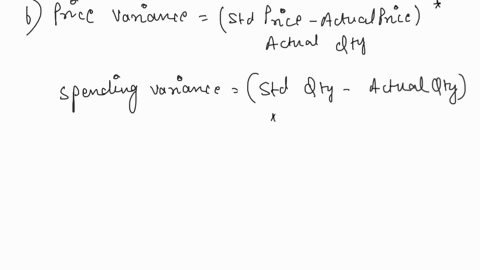 b) Price variance = (Std Price - Actual Price) *
Actual Qty
Spending variance = (Std Qty - Actual Qty)
*